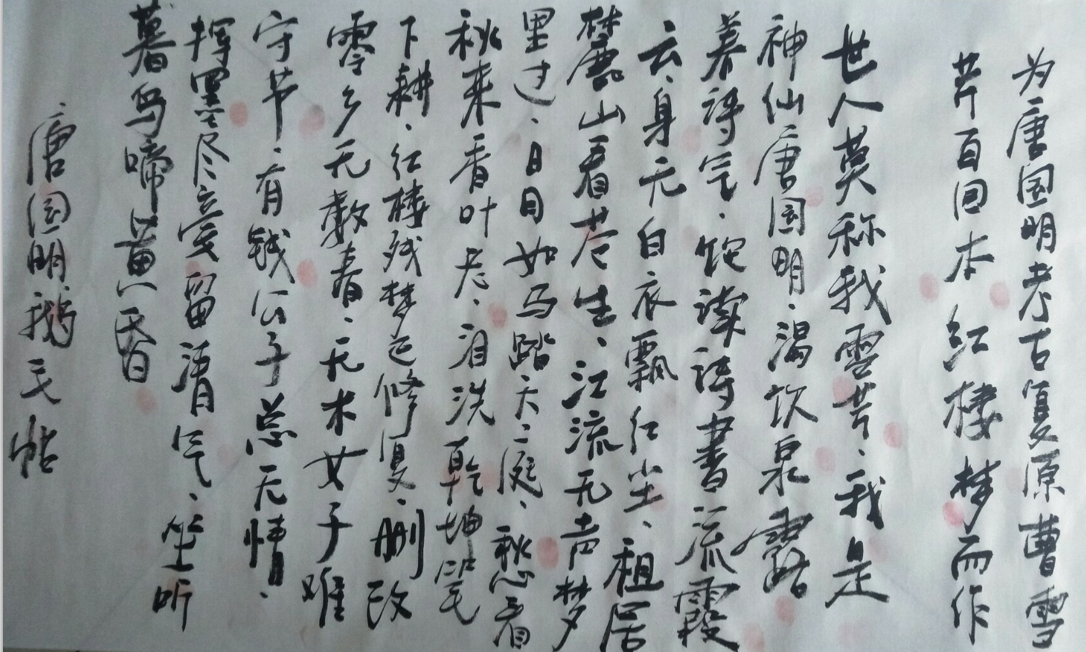 为唐国明考古复原曹雪
芹百回本红楼梦而作
世人莫称我雪芹、我是
神仙唐国明、渴饮泉露
养诗气、饱读诗书流霞
云、身无白衣飘红尘、租居
麓山看苍生、江流无声梦
里过、日日如马踏天庭、愁看
秋来香叶老、泪洗乾坤笔
下耕、红楼残梦近修复、删改
零乡无数春、无木女子难
守节、有钱公子总无情、
挥墨尽变留清气、坐听
暮鸟啼黄昏
唐国明鹅毛帖